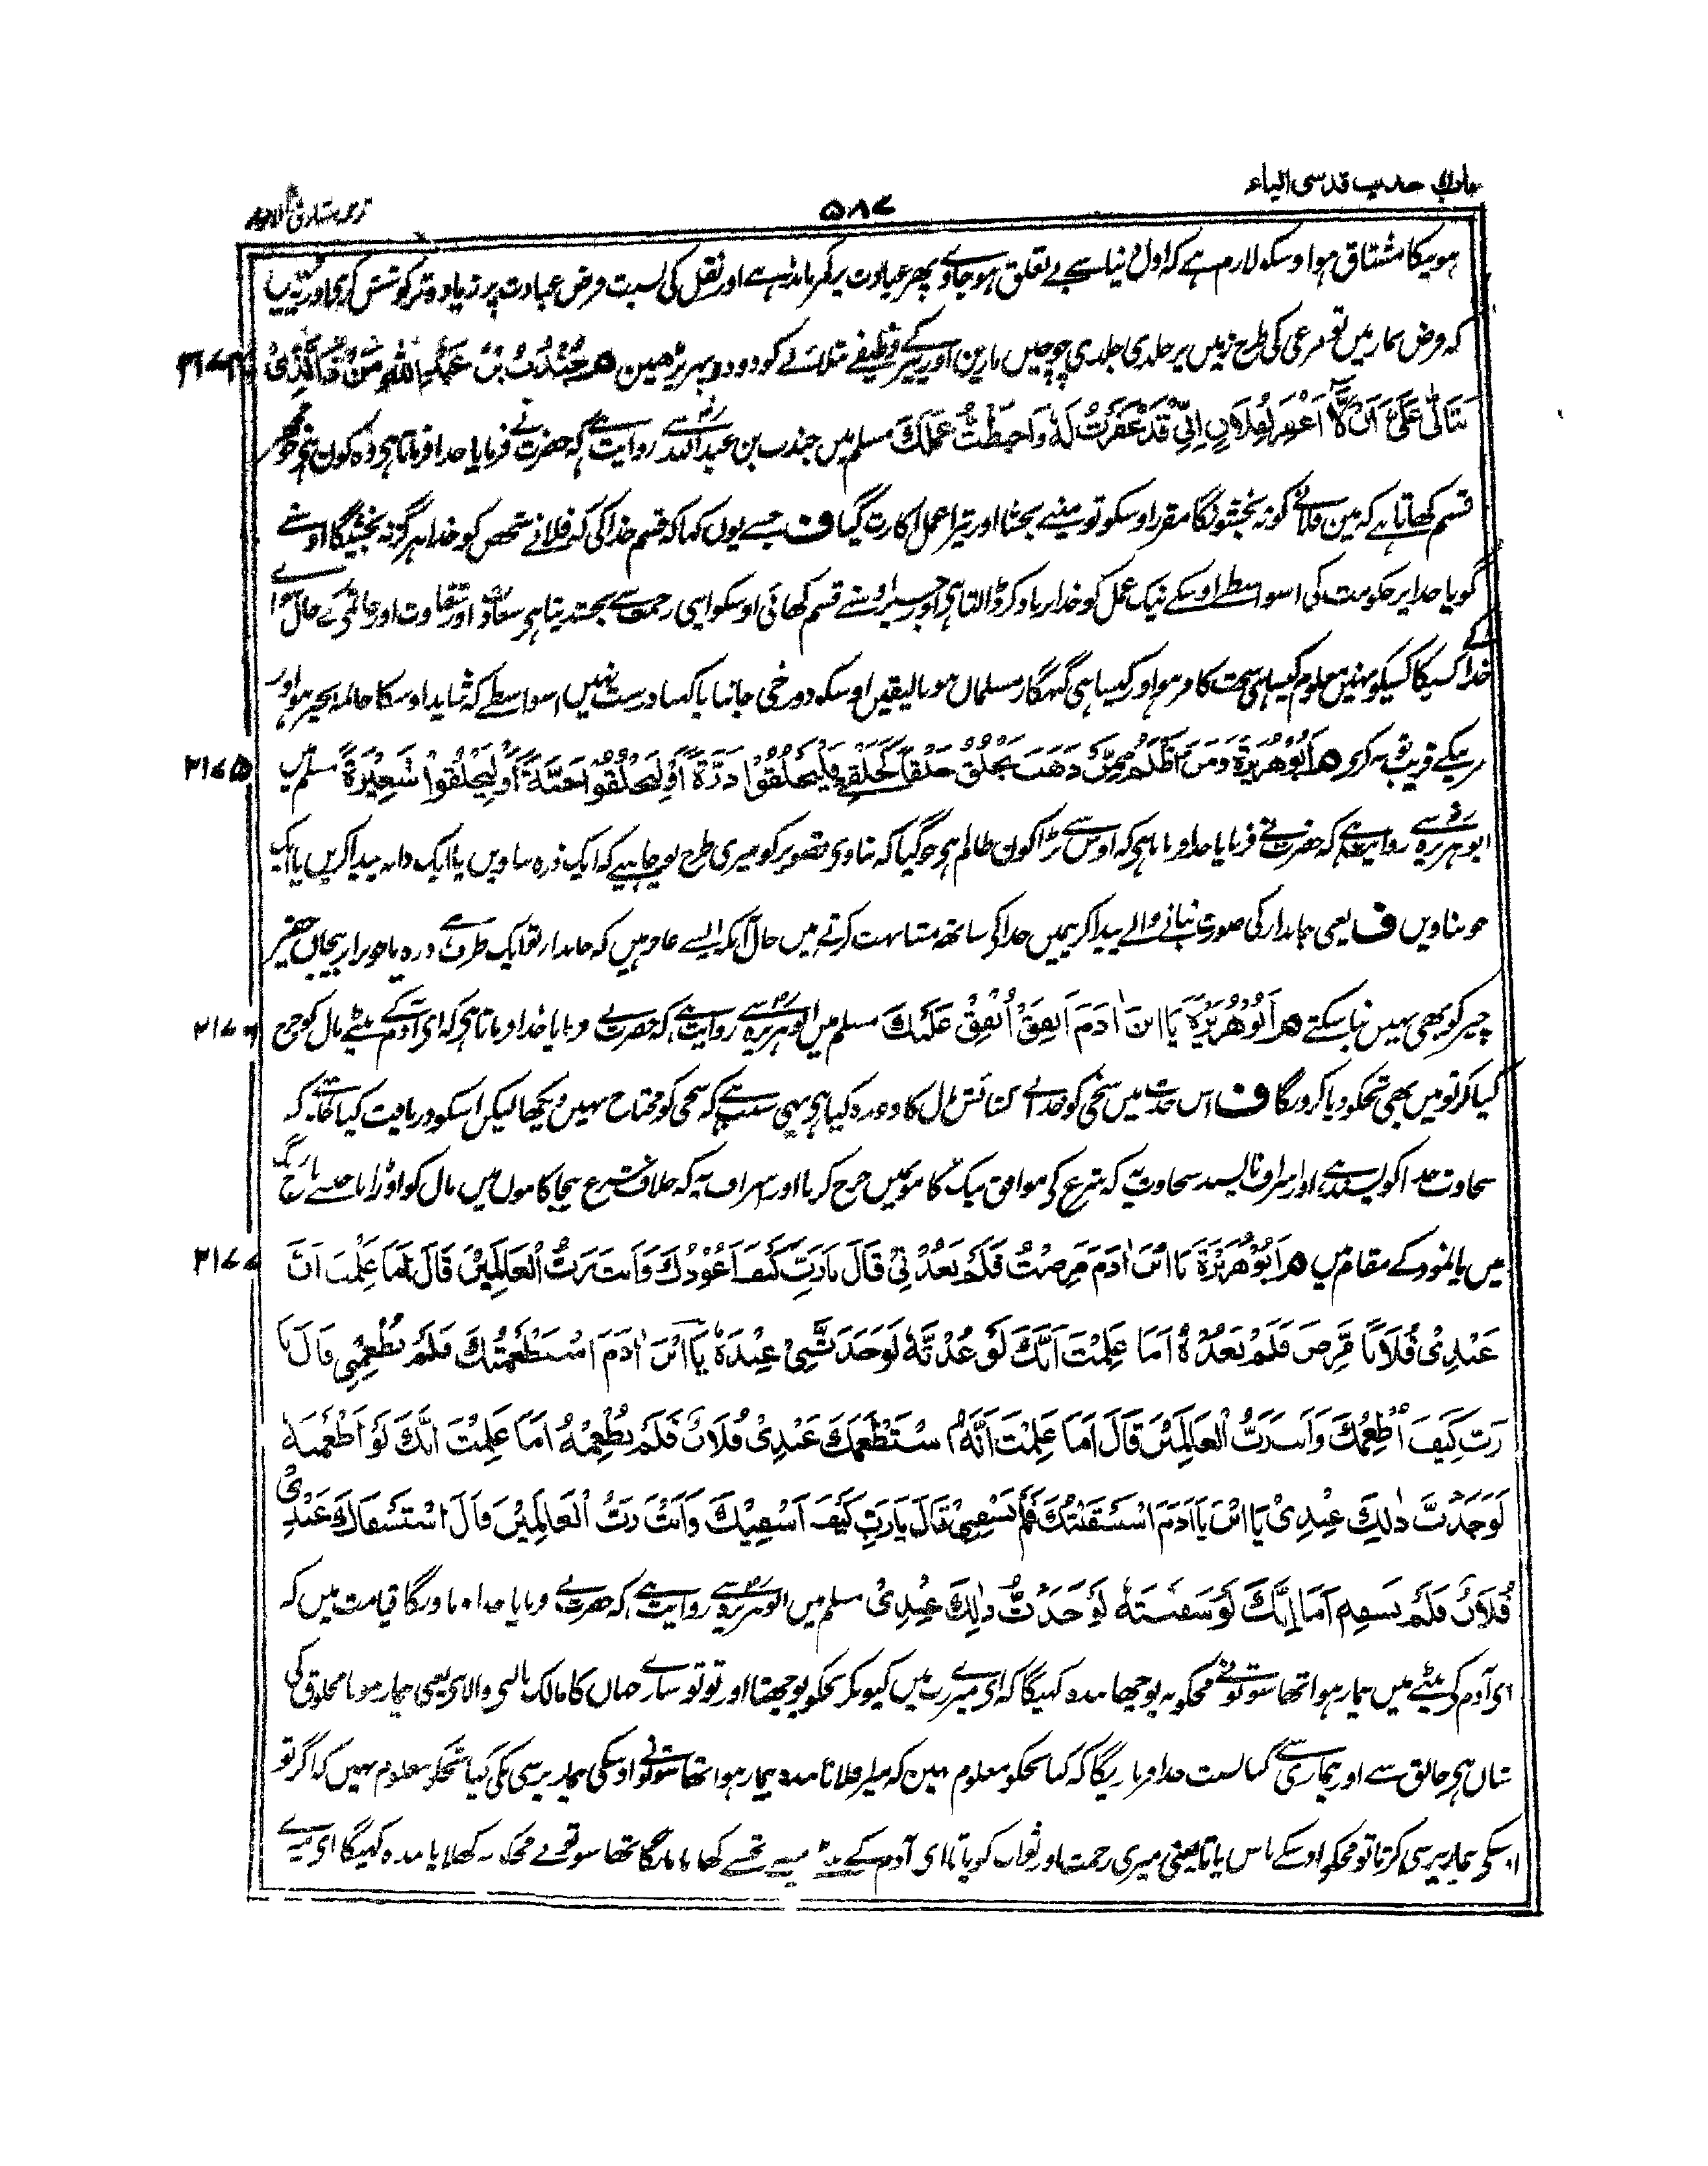 حدیث قدسی الباء
۵۸۷
ترجمہ مشارق الانوار
ہونیکا مشتاق ہو اوسکو لازم ہے کہ اول دنیا سے بے تعلق ہو جاوے پھر عبادت پر کمر باندھے اور نفل کی نسبت فرض عبادت پر زیادہ تر کوشش کری اور
کہ فرض نماز میں تو مرغی کی طرح زمیں پر جلدی جلدی چونچیں مارین اور وظیفے کو دو دو پہر پڑھین م جُنْدُبُ بْنُ عَبْدِ اللهِ مَنْ ذَا الَّذِیْ ۲۱۷۴
یَتَاَلّٰی عَلَیَّ اَنْ لَّا اَغْفِرَ لِفُلَانٍ اِنِّیْ قَدْ غَفَرْتُ لَهٗ وَاَحْبَطْتُ عَمَلَكَ مسلم میں جندب بن عبداللہ سے روایت ہے کہ حضرت نے فرمایا خدا فرماتا ہی وہ کون ہی جو
قسم کھاتا ہے کہ مین فلانے کو نہ بخشونگا مقرر اوسکو تو مینے بخشا اور تیرا عمل اکارت گیا ف جسے یوں کہا کہ قسم خدا کی کہ فلانے شخص کو خدا ہرگز نہ بخشیگا اوسنے
گویا خدا پر حکومت کی اسواسطے اوسکے نیک عمل کو خدا برباد کر ڈالتا ہی اور جسپر اوسنے قسم کھائی اوسکو اپنی رحمت سے بخشدیتا ہی سعادت اور شقاوت اور خاتمے کے حال سواے
خدا کے کسیکا کسیکو نہیں معلوم کیسا ہی سخت کافر ہو اور کیسا ہی گنہگار مسلمان ہو بالیقین اوسکو دوزخی جاننا یا کہنا درست نہیں اسواسطے کہ شاید اوسکا خاتمہ بخیر ہو اور
مرنیکے قریب توبہ کری م اَبُوْهُرَیْرَةَ وَمَنْ اَظْلَمُ مِمَّنْ ذَهَبَ یَخْلُقُ خَلْقًا كَخَلْقِیْ فَلْیَخْلُقُوْا ذَرَّةً اَوْ لِیَخْلُقُوْا حَبَّةً اَوْ لِیَخْلُقُوْا شَعِیْرَةً مسلم میں ۲۱۷۵
ابوہریرہ سے روایت ہے کہ حضرت نے فرمایا خدا فرماتا ہی کہ اوس سے بڑا کون ظالم ہی جو گیا کہ بناوی تصویر کو میری طرح تو چاہیے کہ ایک ذرہ بناویں یا ایک دانہ پیدا کریں یا ایک
جو بناویں ف یعنی جاندار کی صورت بنانے والے پیدا کرنیمیں خدا کی ساتھ مشابہت کرتے ہیں حال آنکہ ایسے عاجز ہیں کہ جاندار تو ایک طرف ہے ذرہ یا جو برابر بیجان حقیر
چیز کو بھی نہیں بنا سکتے م اَبُوْهُرَیْرَةَ یَا ابْنَ اٰدَمَ اَنْفِقْ اُنْفِقْ عَلَیْكَ مسلم میں ابوہریرہ سے روایت ہے کہ حضرت نے فرمایا خدا فرماتا ہی کہ ای آدم کے بیٹے مال کو خرچ ۲۱۷۶
کیا کر تو میں بھی تجھکو دیا کرونگا ف اس حدیث میں سخی کو خدا نے کشائش مال کا وعدہ کیا ہی یہی سبب ہے کہ سخی کو محتاج نہیں دیکھا لیکن اسکو دریافت کیا چاہئے کہ
سخاوت خدا کو پسند ہے اور اسراف ناپسند سخاوت یہ کہ شرع کی موافق نیک کامونمیں خرچ کرنا اور اسراف یہ کہ خلاف شرع بیجا کاموں میں مال کو اوڑانا جیسے ناچ رنگ
میں یا نمود کے مقام میں م اَبُوْهُرَیْرَةَ یَا ابْنَ اٰدَمَ مَرِضْتُ فَلَمْ تَعُدْنِیْ قَالَ یَارَبِّ كَیْفَ اَعُوْدُكَ وَاَنْتَ رَبُّ الْعَالَمِیْنَ قَالَ اَمَا عَلِمْتَ اَنَّ ۲۱۷۷
عَبْدِیْ فُلَانًا مَّرِضَ فَلَمْ تَعُدْهُ اَمَا عَلِمْتَ اَنَّكَ لَوْ عُدْتَّهٗ لَوَجَدْتَّنِیْ عِنْدَهٗ یَا ابْنَ اٰدَمَ اسْتَطْعَمْتُكَ فَلَمْ تُطْعِمْنِیْ قَالَ یَا
رَبِّ كَیْفَ اُطْعِمُكَ وَاَنْتَ رَبُّ الْعَالَمِیْنَ قَالَ اَمَا عَلِمْتَ اَنَّهٗ اسْتَطْعَمَكَ عَبْدِیْ فُلَانٌ فَلَمْ تُطْعِمْهُ اَمَا عَلِمْتَ اَنَّكَ لَوْ اَطْعَمْتَهٗ
لَوَجَدْتَّ ذٰلِكَ عِنْدِیْ یَا ابْنَ یَا اٰدَمَ اسْتَسْقَیْتُكَ فَلَمْ تَسْقِنِیْ قَالَ یَارَبِّ كَیْفَ اَسْقِیْكَ وَاَنْتَ رَبُّ الْعَالَمِیْنَ قَالَ اسْتَسْقَاكَ عَبْدِیْ
فُلَانٌ فَلَمْ تَسْقِهٖ اَمَا اِنَّكَ لَوْ سَقَیْتَهٗ لَوَجَدْتَّ ذٰلِكَ عِنْدِیْ مسلم میں ابوہریرہ سے روایت ہے کہ حضرت نے فرمایا خدا فرماویگا قیامت میں کہ
ای آدم کے بیٹے میں بیمار ہوا تھا سو تونے مجھکو نہ پوچھا بندہ کہیگا کہ ای میرے رب میں کیونکر تجھکو پوچھتا اور تو تو سارے جہاں کا مالک پالنے والا ہی یعنی بیمار ہونا مخلوق کی
شان ہی خالق سے اور بیماری سے کیا نسبت خدا فرماویگا کہ کیا تجھکو معلوم نہین کہ میرا فلانا بندہ بیمار ہوا تھا سو تونے اوسکی بیمار پرسی نکی کیا تجھکو معلوم نہیں کہ اگر تو
اوسکی بیمار پرسی کرتا تو مجھکو اوسکے پاس پاتا یعنی میری رحمت اور ثواب کو پاتا ای آدم کے بیٹے مینے تجھسے کھانا مانگا تھا سو تونے مجھکو نہ کھلایا بندہ کہیگا ای میرے